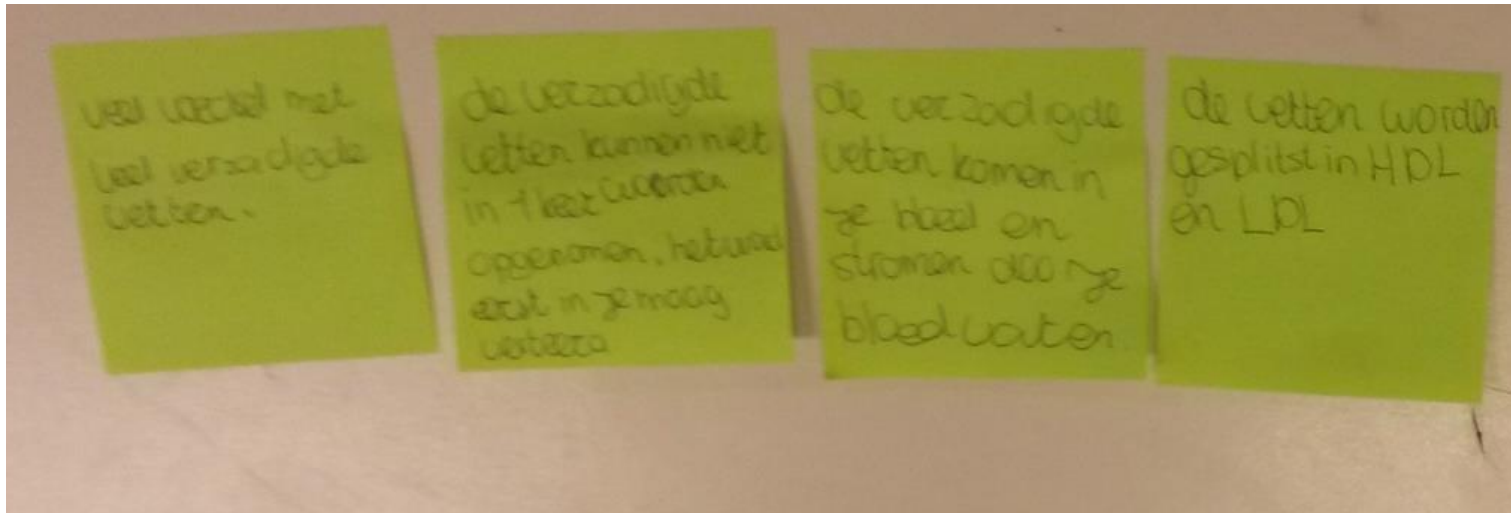 veel voedsel met
veel verzadigde
vetten.
de verzadigde
vetten kunnen niet
in 1 keer worden
opgenomen, het word
eerst in je maag
verteerd
de verzadigde
vetten komen in
je bloed en
stromen door je
bloedvaten.
de vetten worden
gesplitst in HDL
en LDL